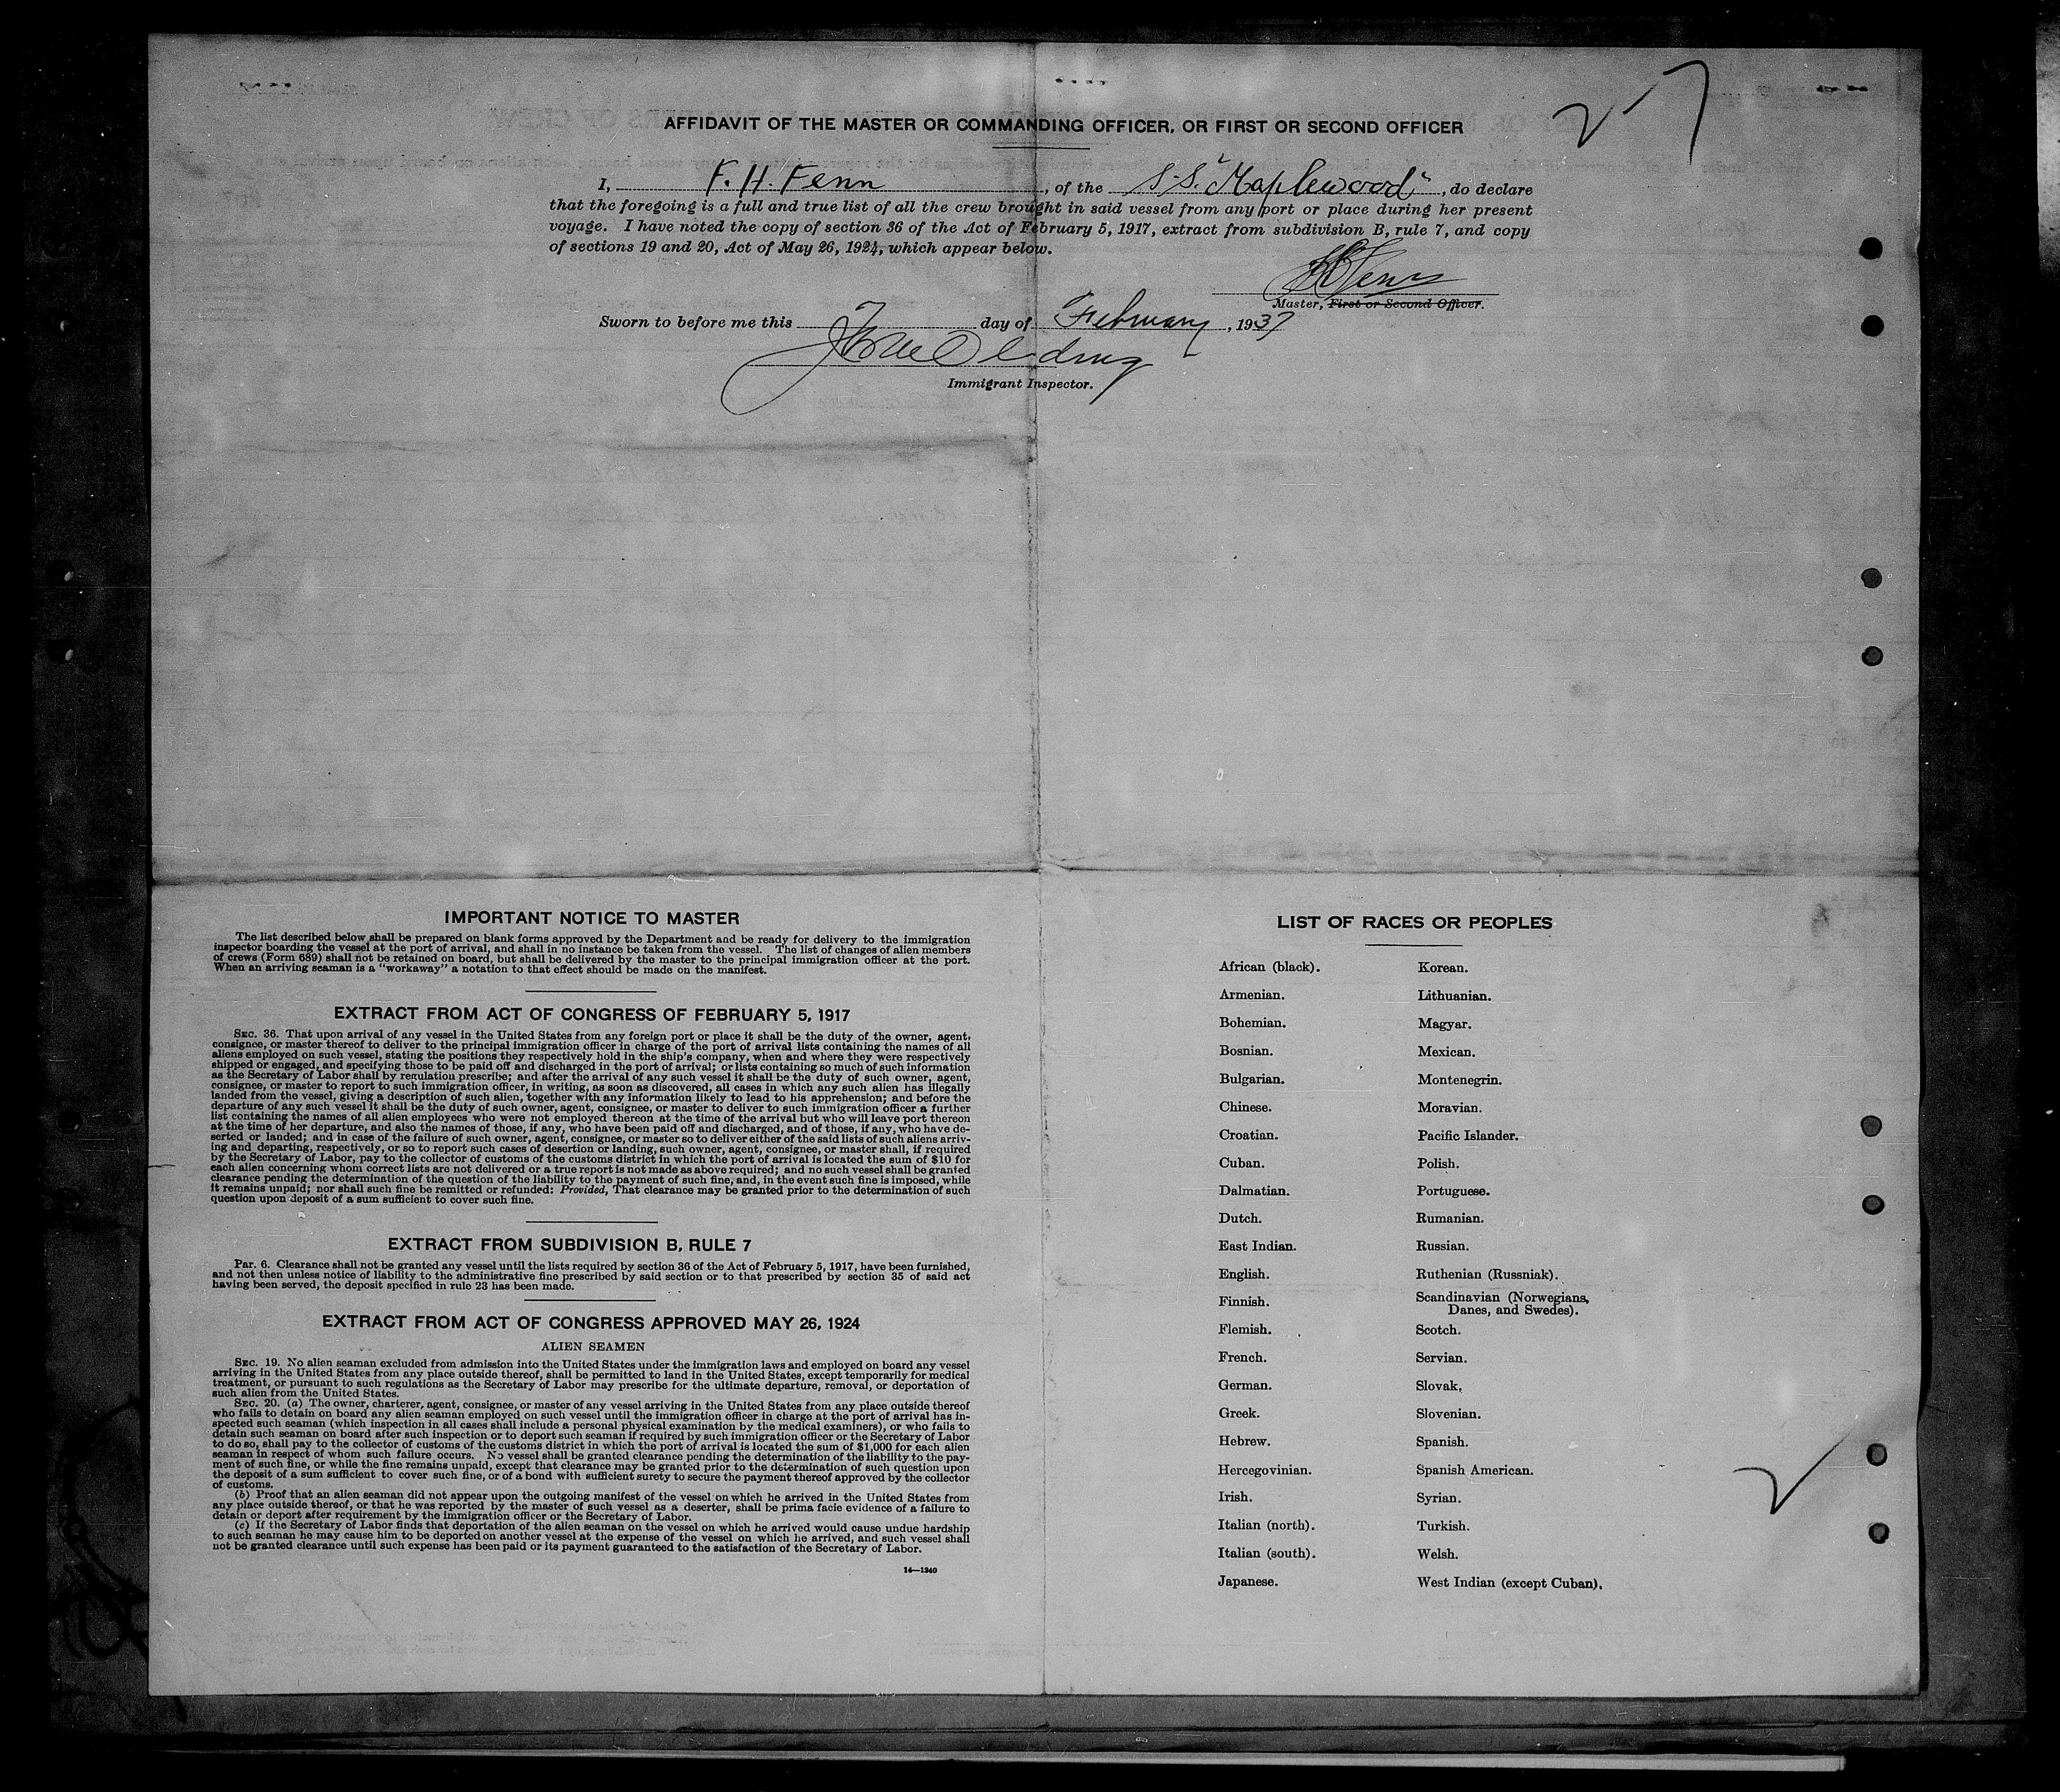 2-7
AFFIDAVIT OF THE MASTER OR COMMANDING OFFICER, OR FIRST OR SECOND OFFICER
I, F. H. Fenn, of the S.S. "Maplewood", do declare
that the foregoing is a full and true list of all the crew brought in said vessel from any port or place during her present
voyage. I have noted the copy of section 36 of the Act of February 5, 1917, extract from subdivision B, rule 7, and copy
of sections 19 and 20, Act of May 26, 1924, which appear below.
Master, First or Second Officer.
Sworn to before me this 7 day of February, 1937
Immigrant Inspector.
IMPORTANT NOTICE TO MASTER
The list described below shall be prepared on blank forms approved by the Department and be ready for delivery to the immigration
inspector boarding the vessel at the port of arrival, and shall in no instance be taken from the vessel. The list of changes of alien members
of crews (Form 689) shall not be retained on board, but shall be delivered by the master to the principal immigration officer at the port.
When an arriving seaman is a "workaway" a notation to that effect should be made on the manifest.
EXTRACT FROM ACT OF CONGRESS OF FEBRUARY 5, 1917
SEC. 36. That upon arrival of any vessel in the United States from any foreign port or place it shall be the duty of the owner, agent,
consignee, or master thereof to deliver to the principal immigration officer in charge of the port of arrival lists containing the names of all
aliens employed on such vessel, stating the positions they respectively hold in the ship's company, when and where they were respectively
shipped or engaged, and specifying those to be paid off and discharged in the port of arrival; or lists containing so much of such information
as the Secretary of Labor shall by regulation prescribe; and after the arrival of any such vessel it shall be the duty of such owner, agent,
consignee, or master to report to such immigration officer, in writing, as soon as discovered, all cases in which any such alien has illegally
landed from the vessel, giving a description of such alien, together with any information likely to lead to his apprehension; and before the
departure of any such vessel it shall be the duty of such owner, agent, consignee, or master to deliver to such immigration officer a further
list containing the names of all alien employees who were not employed thereon at the time of the arrival but who will leave port thereon
at the time of her departure, and also the names of those, if any, who have been paid off and discharged, and of those, if any, who have de-
serted or landed; and in case of the failure of such owner, agent, consignee, or master so to deliver either of the said lists of such aliens arriv-
ing and departing, respectively, or so to report such cases of desertion or landing, such owner, agent, consignee, or master shall, if required
by the Secretary of Labor, pay to the collector of customs of the customs district in which the port of arrival is located the sum of $10 for
each alien concerning whom correct lists are not delivered or a true report is not made as above required; and no such vessel shall be granted
clearance pending the determination of the question of the liability to the payment of such fine, and, in the event such fine is imposed, while
it remains unpaid; nor shall such fine be remitted or refunded: Provided, That clearance may be granted prior to the determination of such
question upon deposit of a sum sufficient to cover such fine.
EXTRACT FROM SUBDIVISION B, RULE 7
Par. 6. Clearance shall not be granted any vessel until the lists required by section 36 of the Act of February 5, 1917, have been furnished,
and not then unless notice of liability to the administrative fine prescribed by said section or to that prescribed by section 35 of said act
having been served, the deposit specified in rule 23 has been made.
EXTRACT FROM ACT OF CONGRESS APPROVED MAY 26, 1924
ALIEN SEAMEN
SEC. 19. No alien seaman excluded from admission into the United States under the immigration laws and employed on board any vessel
arriving in the United States from any place outside thereof, shall be permitted to land in the United States, except temporarily for medical
treatment, or pursuant to such regulations as the Secretary of Labor may prescribe for the ultimate departure, removal, or deportation of
such alien from the United States.
SEC. 20. (a) The owner, charterer, agent, consignee, or master of any vessel arriving in the United States from any place outside thereof
who fails to detain on board any alien seaman employed on such vessel until the immigration officer in charge at the port of arrival has in-
spected such seaman (which inspection in all cases shall include a personal physical examination by the medical examiners), or who fails to
detain such seaman on board after such inspection or to deport such seaman if required by such immigration officer or the Secretary of Labor
to do so, shall pay to the collector of customs of the customs district in which the port of arrival is located the sum of $1,000 for each alien
seaman in respect of whom such failure occurs. No vessel shall be granted clearance pending the determination of the liability to the pay-
ment of such fine, or while the fine remains unpaid, except that clearance may be granted prior to the determination of such question upon
the deposit of a sum sufficient to cover such fine, or of a bond with sufficient surety to secure the payment thereof approved by the collector
of customs.
(b) Proof that an alien seaman did not appear upon the outgoing manifest of the vessel on which he arrived in the United States from
any place outside thereof, or that he was reported by the master of such vessel as a deserter, shall be prima facie evidence of a failure to
detain or deport after requirement by the immigration officer or the Secretary of Labor.
(c) If the Secretary of Labor finds that deportation of the alien seaman on the vessel on which he arrived would cause undue hardship
to such seaman he may cause him to be deported on another vessel at the expense of the vessel on which he arrived, and such vessel shall
not be granted clearance until such expense has been paid or its payment guaranteed to the satisfaction of the Secretary of Labor.
14—1240
LIST OF RACES OR PEOPLES
African (black). Korean.
Armenian. Lithuanian.
Bohemian. Magyar.
Bosnian. Mexican.
Bulgarian. Montenegrin.
Chinese. Moravian.
Croatian. Pacific Islander.
Cuban. Polish.
Dalmatian. Portuguese.
Dutch. Rumanian.
East Indian. Russian.
English. Ruthenian (Russniak).
Finnish. Scandinavian (Norwegians,
Danes, and Swedes).
Flemish. Scotch.
French. Servian.
German. Slovak.
Greek. Slovenian.
Hebrew. Spanish.
Hercegovinian. Spanish American.
Irish. Syrian.
Italian (north). Turkish.
Italian (south). Welsh.
Japanese. West Indian (except Cuban).